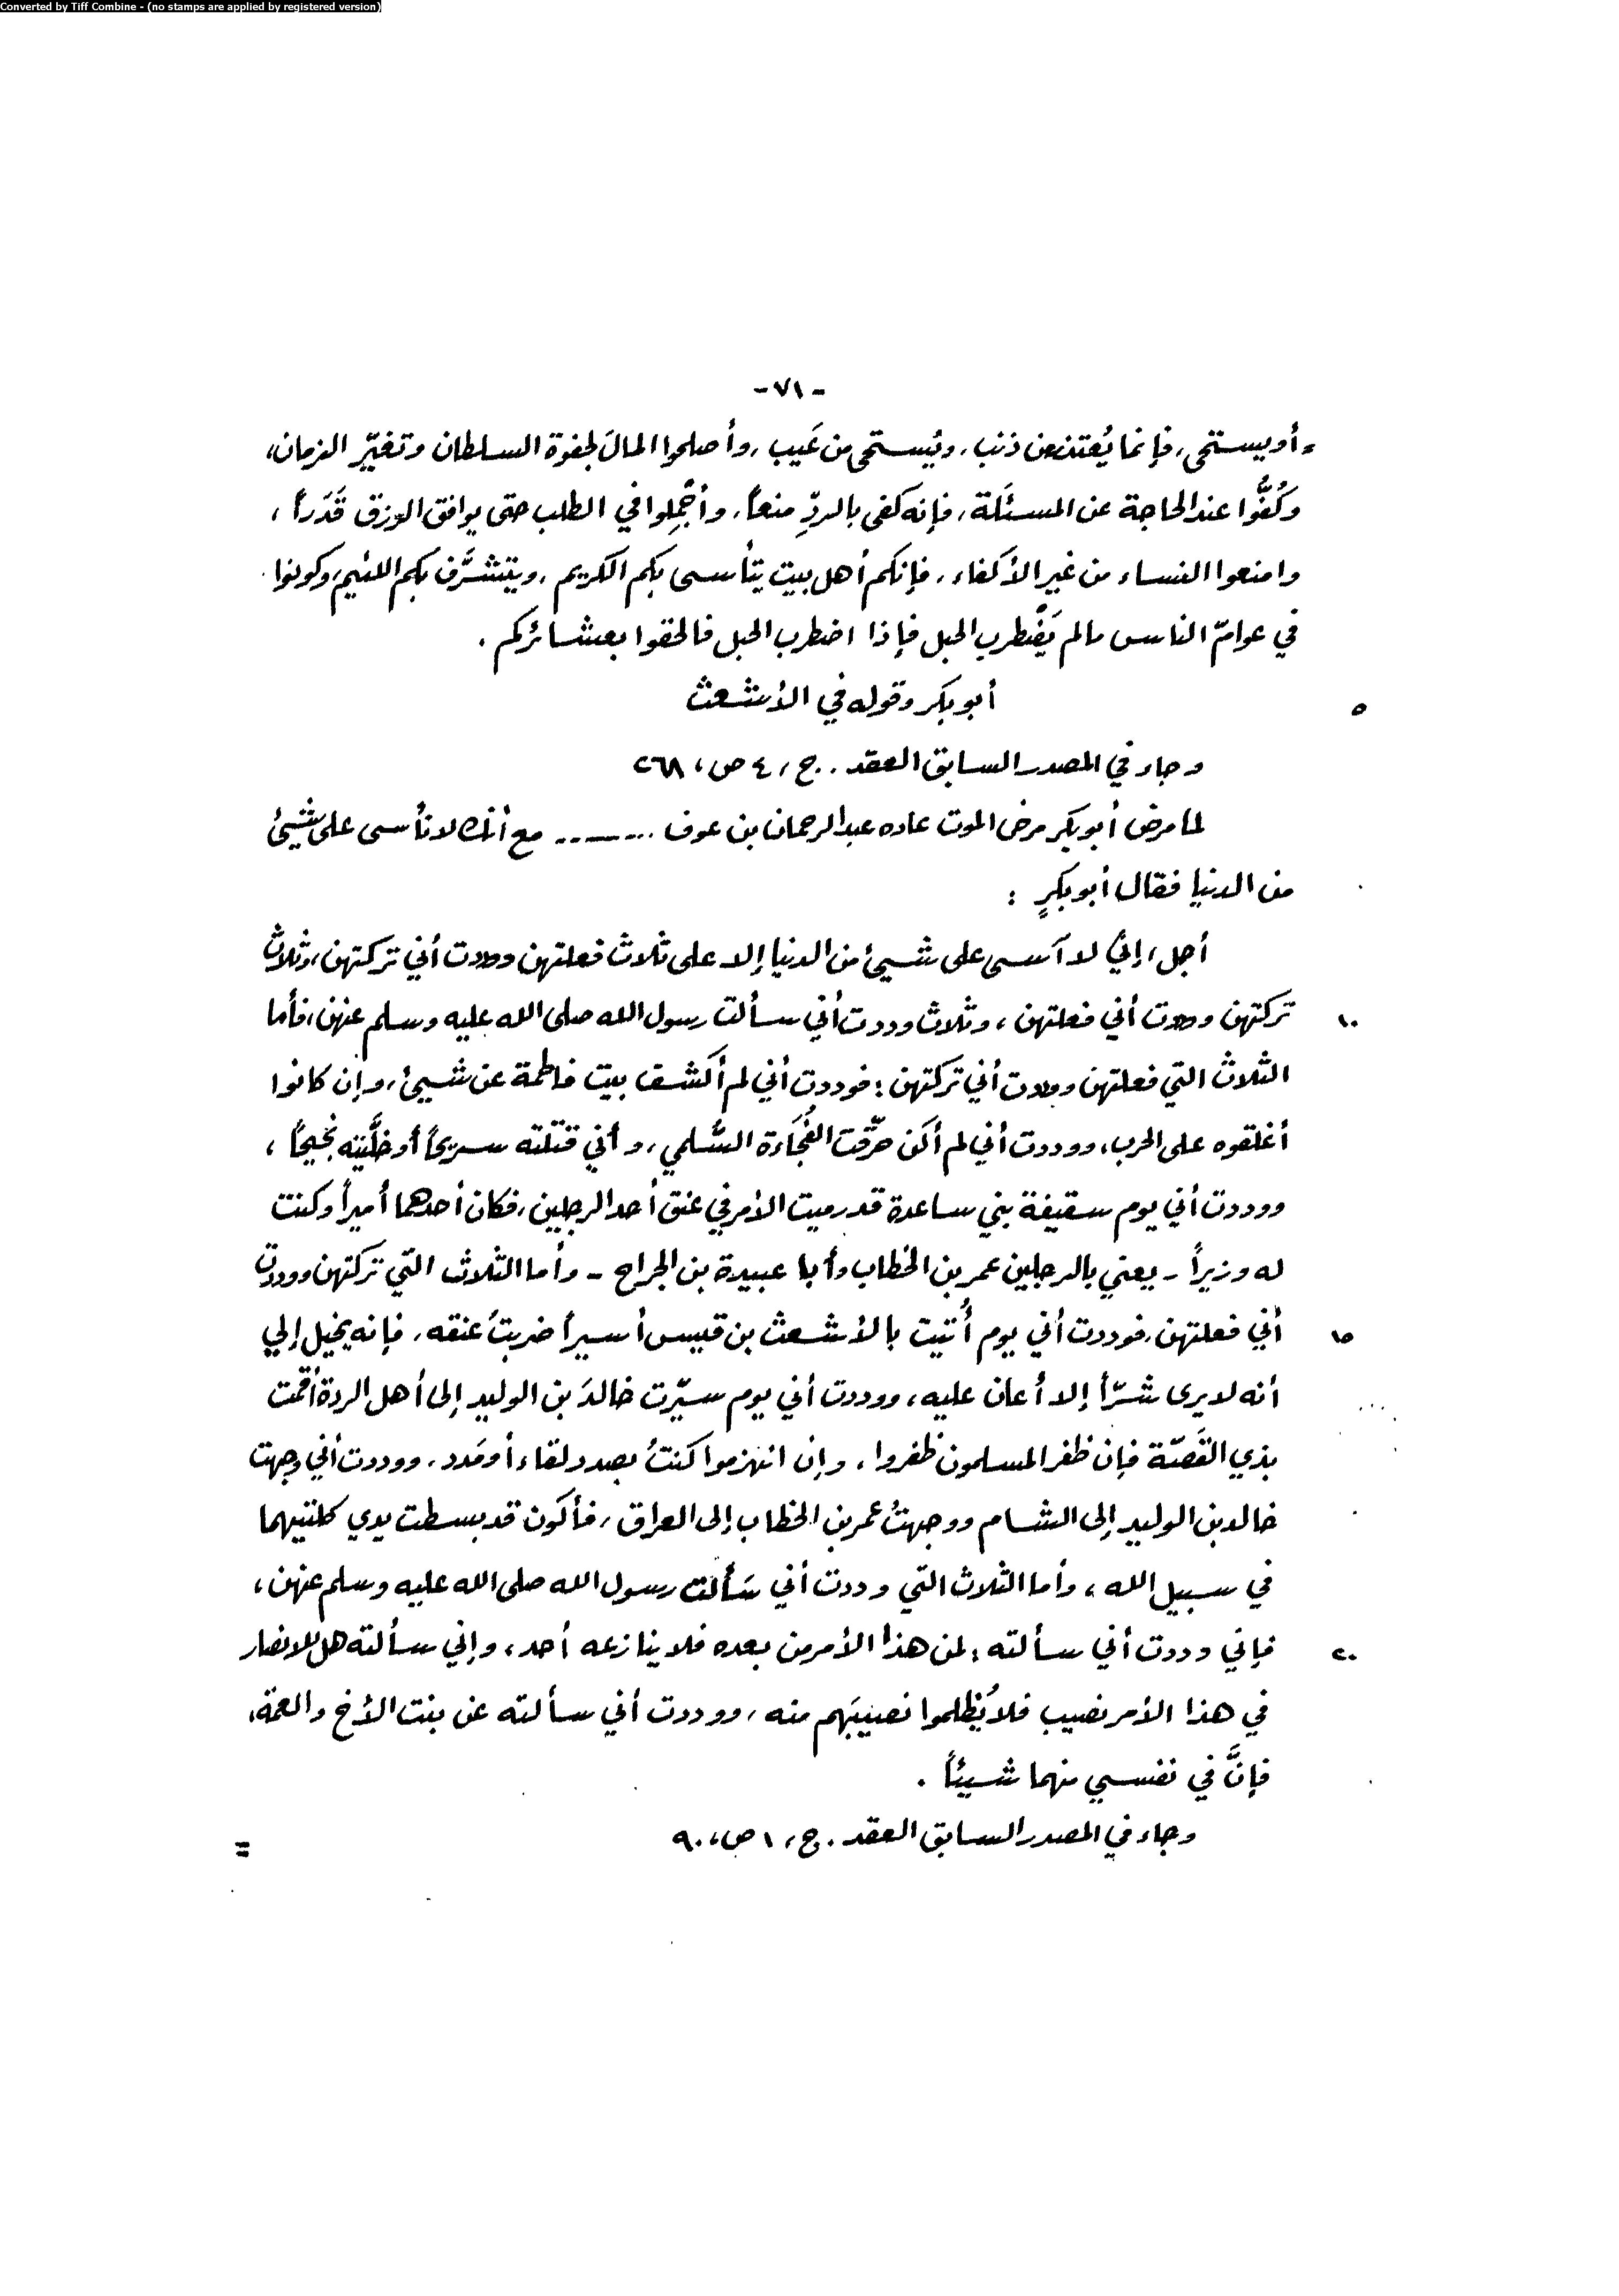 Converted by Tiff Combine - (no stamps are applied by registered version)
-٧١-
= أو يستحى، فإنما يُعتذر من ذنب، ويُستحى من عَيب، وأصلحوا المالَ لجفوة السلطان وتغيّر الزمان،
وكُفُّوا عند الحاجة عن المسئَلة، فإنه كفى بالردِّ منعاً، وأجْمِلوا في الطلب حتى يوافق الرزق قَدَراً،
وامنعوا النساء من غير الأكفاء، فإنكم أهل بيت يتأسى بكم الكريم، ويتشرَّف بكم اللئيم، وكونوا
في عوامّ الناس ما لم يَضْطرب الحبل فإذا اضطرب الحبل فالحقوا بعشائركم.
أبو بكر وقوله في الأشعث
٥
وجاء في المصدر السابق العقد.. ج، ٤ ص، ٢٦٨
لما مرض أبو بكر مرض الموت عاده عبد الرحمان بن عوف ........ مع أنك لا تأسى على شيئ
من الدنيا فقال أبو بكرٍ :
أجل، إنّي لا آسى على شيئ من الدنيا إلا على ثلاث فعلتهن وددت أني تركتهن، وثلاث
تركتهن وددت أني فعلتهن، وثلاث وددت أني سألت رسول الله صلى الله عليه وسلم عنهن، فأما
١٠
الثلاث التي فعلتهن وددت أني تركتهن : فوددت أني لم أكشف بيت فاطمة عن شيئ، وإن كانوا
أغلقوه على الحرب، ووددت أني لم أكن حرّقت الفُجَاءة السُّلمي، وأني قتلته سريحاً أو خلَّيته نجيحاً،
ووددت أني يوم سقيفة بني ساعدة قد رميت الأمر في عنق أحد الرجلين، فكان أحدهما أميراً وكنت
له وزيراً - يعني بالرجلين عمر بن الخطاب وأبا عبيدة بن الجراح - وأما الثلاث التي تركتهن ووددت
أني فعلتهن، فوددت أني يوم أُتيت بالأشعث بن قيس أسيراً ضربتُ عنقه، فإنه يخيل إلي
١٥
أنه لا يرى شرّاً إلا أعان عليه، ووددت أني يوم سيّرت خالدَ بن الوليد إلى أهل الردة أقمت
بذي القَصّة فإن ظفر المسلمون ظفروا، وإن انهزموا كنتُ بصدد لقاء أو مَدد، ووددت أني وجهت
خالد بن الوليد إلى الشام ووجهتُ عمر بن الخطاب إلى العراق، فأكون قد بسطت يدي كلتيهما
في سبيل الله، وأما الثلاث التي وددت أني سَألت رسول الله صلى الله عليه وسلم عنهن،
فإني وددت أني سألته : لمن هذا الأمر من بعده فلا ينازعه أحد، وإني سألته هل للانصار
٢٠
في هذا الأمر نصيب فلا يُظلموا نصيبَهم منه، ووددت أني سألته عن بنت الأخ والعمة،
فإنَّ في نفسي منهما شيئاً.
وجاء في المصدر السابق العقد. ج، ١ ص، ٩٠
=